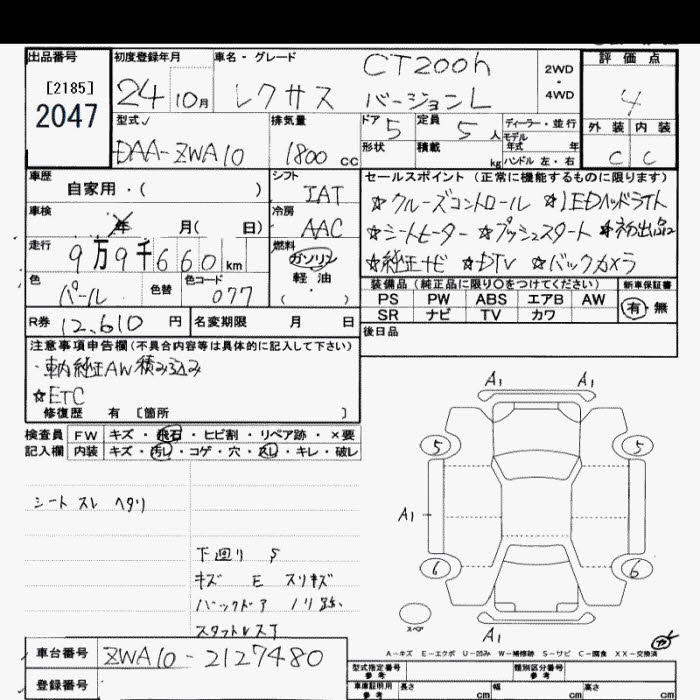 出品番号 初度登録年月 車名・グレード 評価点
[2185] 24 10月 レクサス CT200h バージョンL 2WD 4WD 4
2047
型式 排気量 ドア 定員 ディーラー・並行 外装 内装
DAA-ZWA10 1800 cc 5 5人 モデル年式 年 C C
形状 積載 kg ハンドル 左・右
車歴 シフト セールスポイント (正常に機能するものに限ります)
自家用・( ) IAT ☆クルーズコントロール ☆LEDヘッドライト
車検 年 月( 日) 冷房 AAC ☆シートヒーター ☆プッシュスタート ☆初出品
走行 9万9千660km 燃料 ガソリン ☆純正ナビ ☆DTV ☆バックカメラ
軽油
( ・ )
色 パール 色替 色コード 077
装備品 (純正品に限り〇をつけてください) 新車保証書
PS PW ABS エアB AW 有・無
SR ナビ TV カワ
R券 12,610 円 名変期限 月 日 後日品
注意事項申告欄(不具合内容等は具体的に記入して下さい)
・車内純正AW積み込み
☆ETC
修復歴 有 [箇所 ]
検査員 FW キズ・飛石・ヒビ割・リペア跡・×要
記入欄 内装 キズ・汚し・コゲ・穴・スレ・キレ・破レ
A1 A1
5 5
シート スレ ヘタリ
A1
下回り S
キズ E スリキズ
6 6
バックドア ノリ跡
スタットレスT
スペア
A1
A-キズ E-エクボ U-凹み W-補修跡 S-サビ C-腐食 XX-交換済
車台番号 ZWA10-2127480
登録番号
型式指定番号 参考 類別区分番号 参考
車庫証明用 参考 長さ cm 幅 cm 高さ cm